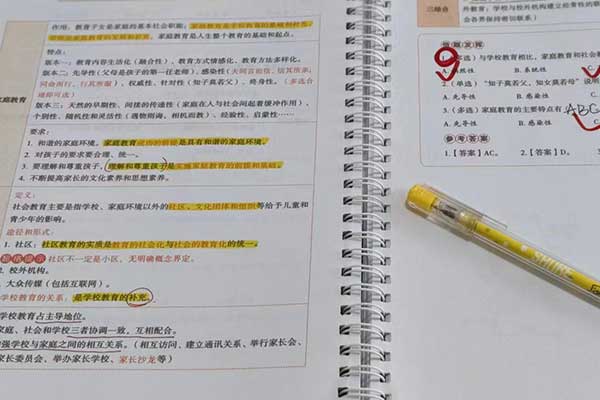 作用：教育子女是家庭的基本社会职能；家庭教育是学校教育的基础和补充，
家庭教育是人生整个教育的基础和起点。
特点：
版本一：教育内容生活化（融合性）、教育方式情感化、教育方法多样化。
版本二：先导性（父母是孩子的第一任老师）、感染性
权威性、针对性（知子莫若父）、终身性。
版本三：天然的早期性、间接的传递性（家庭在人与社会间起着缓冲作用）、
个别性、随机性和灵活性（遇物则诲，相机而教）、经验性、启蒙性……
家庭教育
要求：
1. 和谐的家庭环境。家庭教育成功的前提是具有和谐的家庭环境。
2. 对孩子的要求要合理、统一。
3. 要理解和尊重孩子，理解和尊重孩子是实施家庭教育的前提和基础。
4. 不断提高家长的文化素养和思想素养。
定义：
社会教育主要是指学校、家庭环境以外的社区、文化团体和组织等给予儿童和
青少年的影响。
途径和形式：
1. 社区：社区教育的实质是教育的社会化与社会的教育化的统一。
社区不一定是小区，无明确概念界定。
2. 校外机构。
大众传媒（包括互联网）。
学校教育的关系：是学校教育的补充。
学校教育占主导地位。
家庭、社会和学校三者协调一致，互相配合。
加强学校与家庭之间的相互关系。（相互访问、建立通讯关系、举行家长会、
家长委员会、举办家长学校、家长沙龙等）
三结合
外教育；学校与校外机构建立经常的联
会各界保持密切联系）
9
与学校教育相比，家庭教育和社会
B. 系统性
2.（单选）“知子莫若父、知女莫若母”说明
A. 先导性
B. 感染性
3.（多选）家庭教育的主要特点有
ABC
A. 先导性
B. 感染性
参考答案
1.【答案】AC。
2.【答案】D。